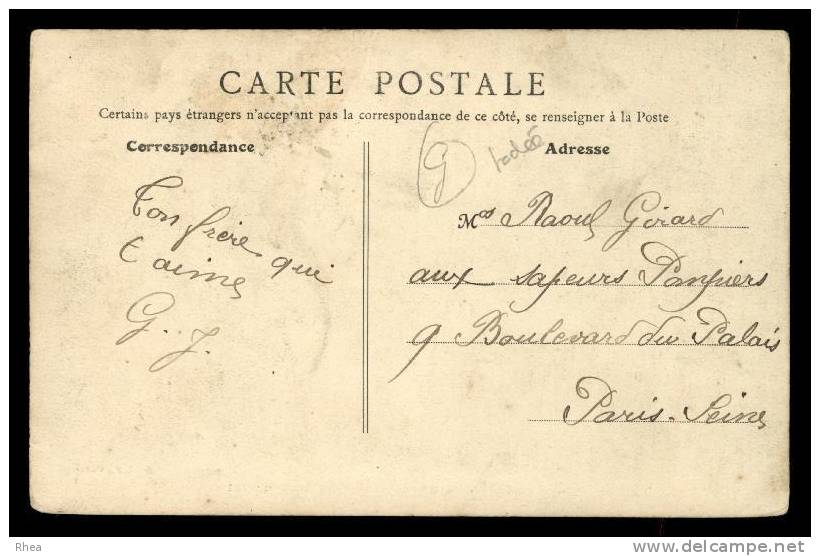 CARTE POSTALE
Certains pays étrangers n'acceptant pas la correspondance de ce côté, se renseigner à la Poste
Correspondance
Ton frère qui
t aime
G. J.
G
Adresse
Mos Raoul Girard
aux sapeurs Pompiers
9 Boulevard du Palais
Paris. Seine
Rhea
www.delcampe.net